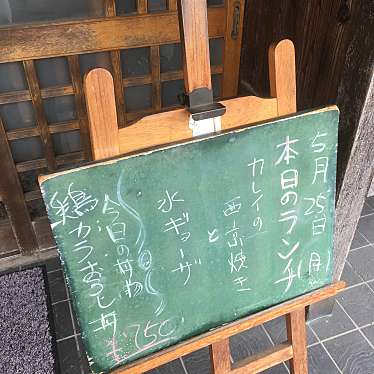 5月25日(月)
本日のランチ
カレイの
西京焼き
と
水ギョーザ
今日の丼物
鶏カラおろし丼
¥750